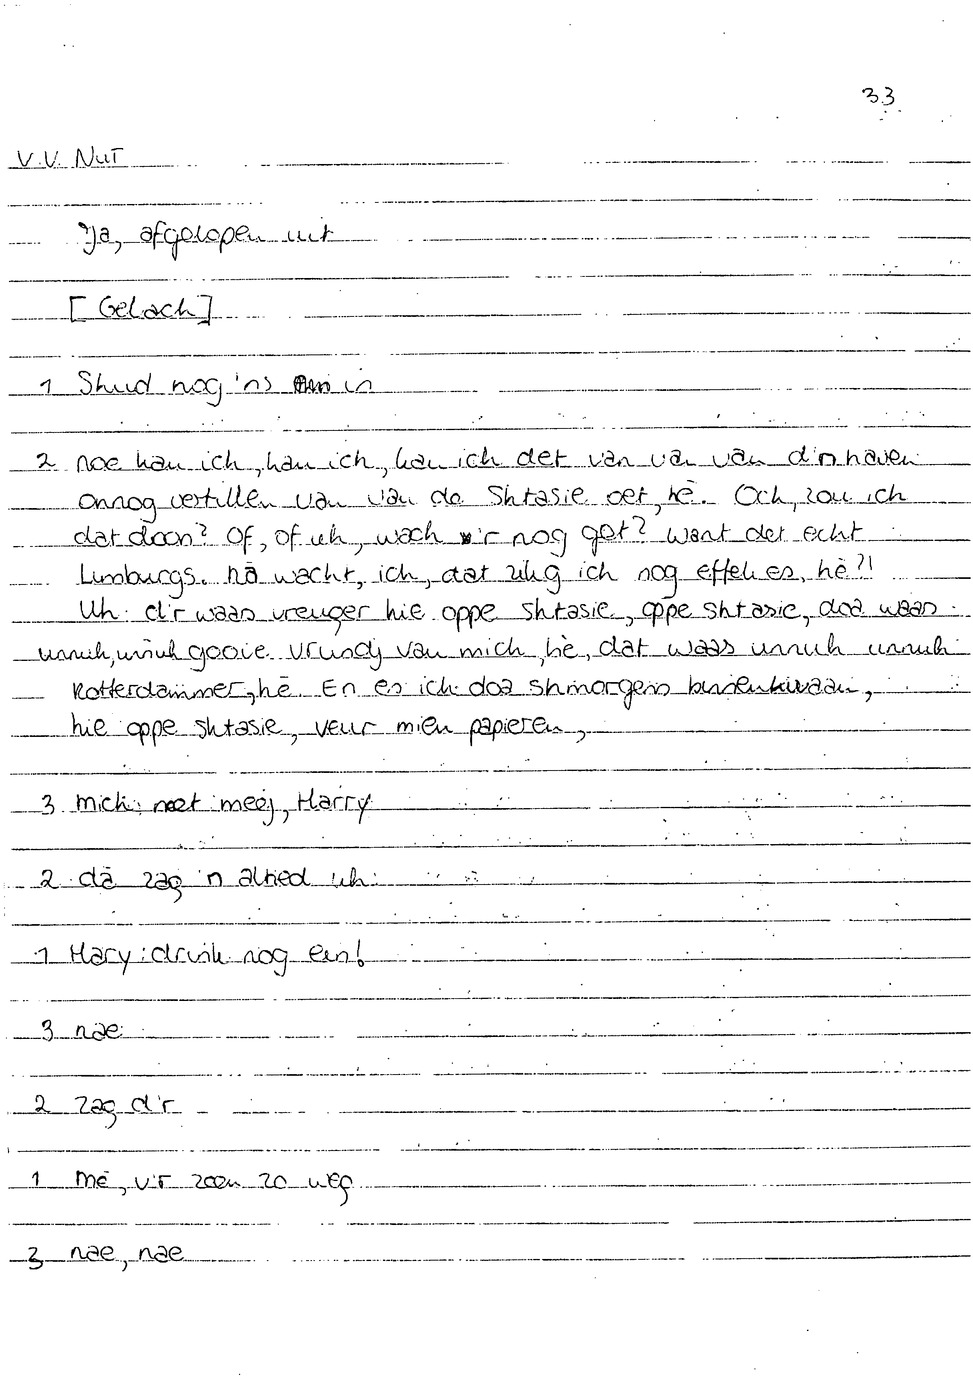 33
V.V. NUT
Ja, afgelopen uit
[Gelach]
1 Shud nog 'ns in
2 noe kan ich, kan ich, kan ich det van van van d'n haven
onnog vertillen van van de Shtasie oet, hè. Och, zou ich
dat doon? Of, of uh, wach v'r nog get? Want det echt
Limburgs. nä wacht, ich, dat zilig ich nog effekes, hè?!
Uh: d'r waas vreuger hie oppe shtasie, oppe shtasie, doa waas
unnuh, unnuh gooie vrundj van mich, hè, dat waas unnuh unnuh
Rotterdammer, hè. En es ich doa shmorgens binnenkwaam,
hie oppe shtasie, veur mien papieren,
3 mich: neet meej, Harry
2 dä zag 'n altied uh:
1 Hary: drink nog ein!
3 nae
2 zag d'r
1 mè, v'r zoen zo weg
3 nae, nae